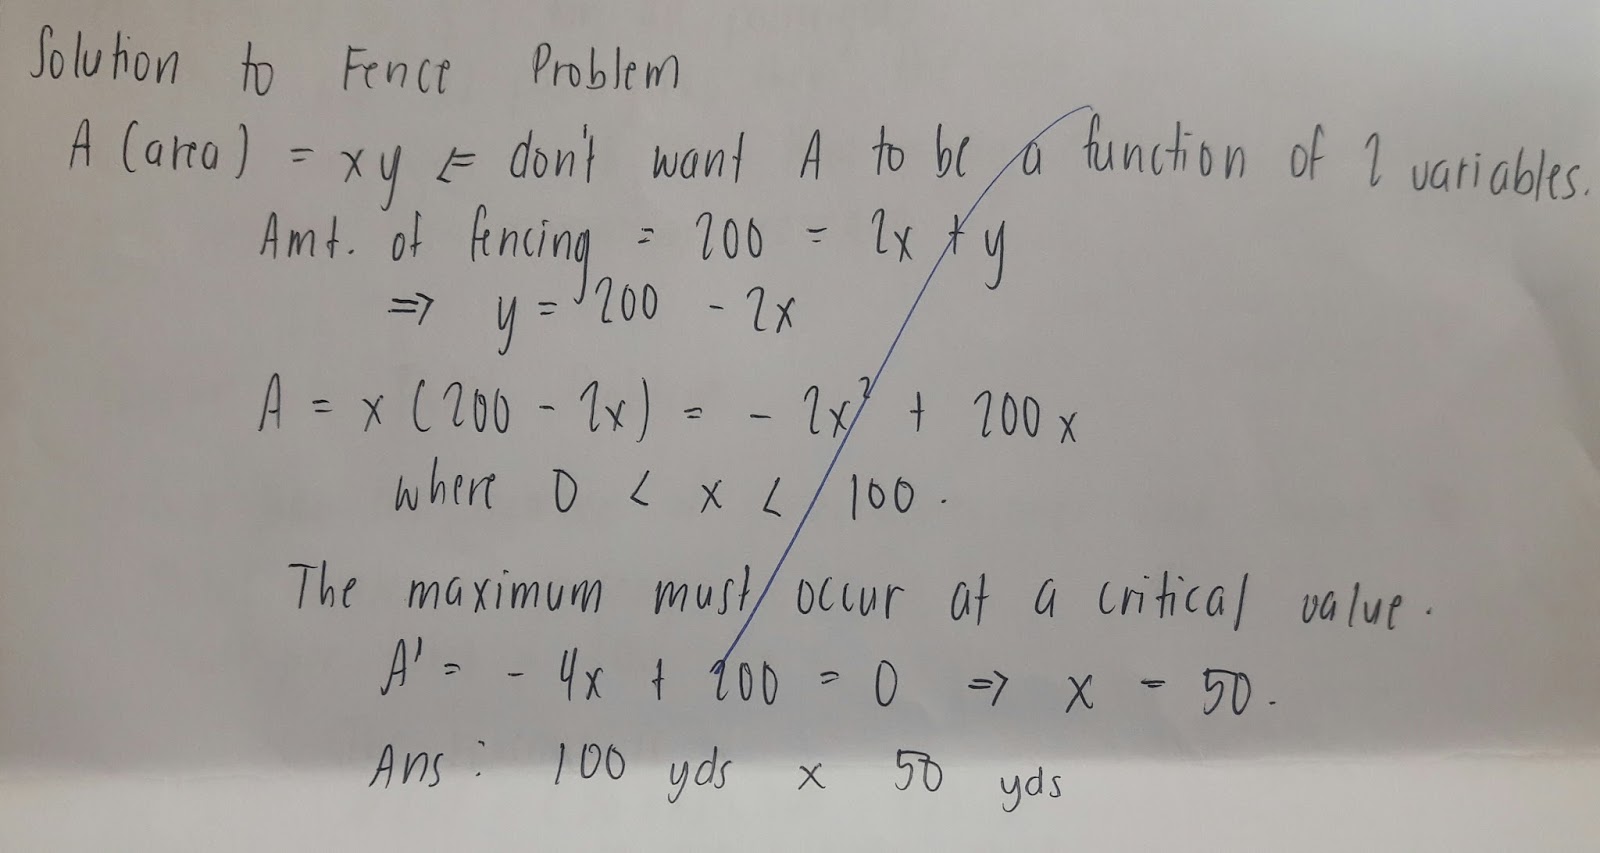 Solution to Fence Problem
A (area) = xy ⇐ don't want A to be a function of 2 variables.
Amt. of fencing = 200 = 2x + y
⇒ y = 200 - 2x
A = x (200 - 2x) = - 2x² + 200x
where 0 < x < 100.
The maximum must occur at a critical value.
A' = - 4x + 200 = 0 ⇒ x = 50.
Ans: 100 yds x 50 yds